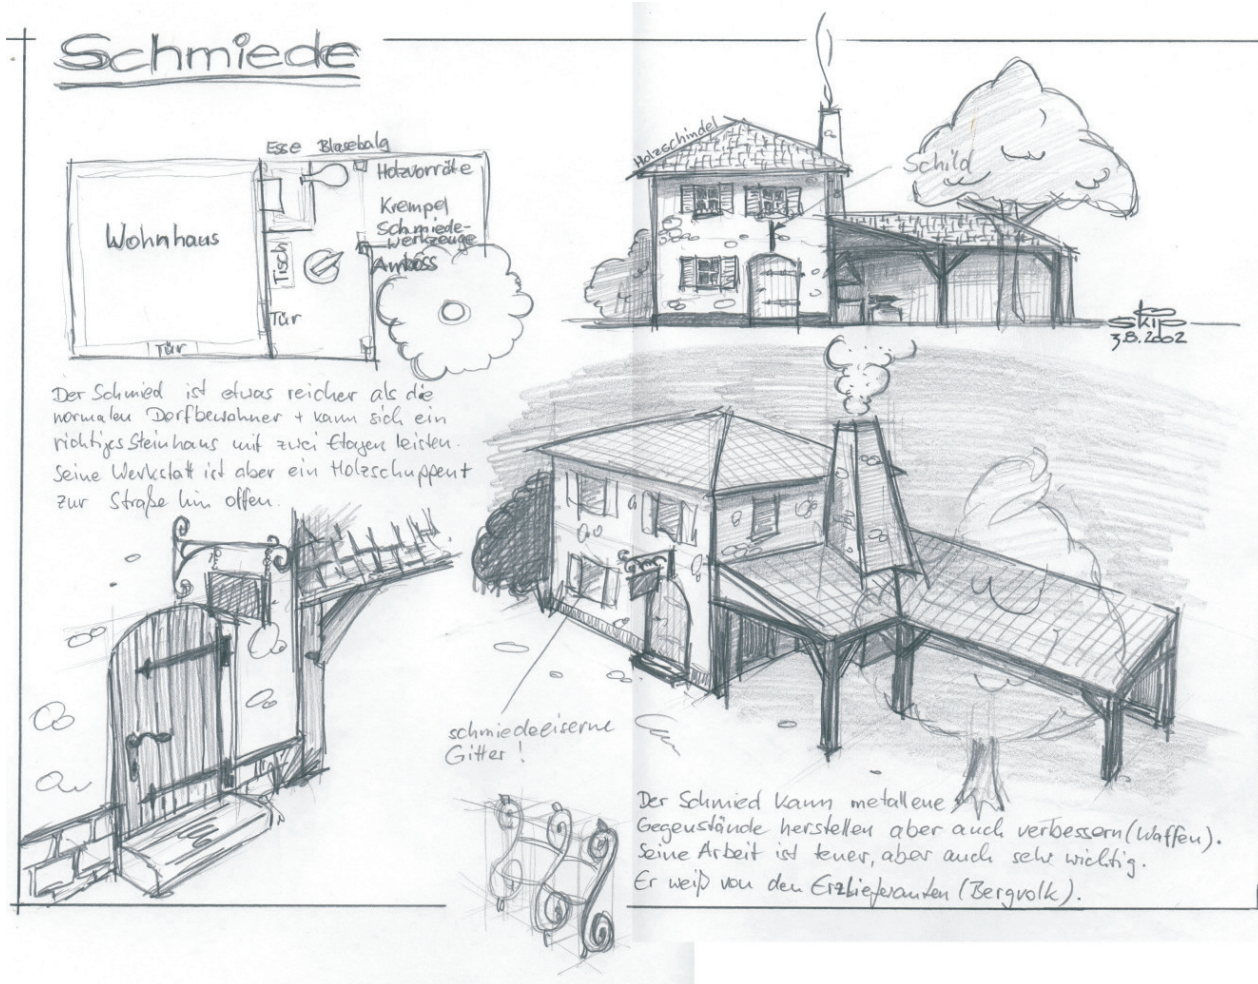 Schmiede
Esse Blasebalg
Holzvorräte
Krempel
Schmiede-
werkzeuge
Amboss
Wohnhaus
Tisch
Tür
Tür
Holzschindel
Schild
Skip
3.8.2002
Der Schmied ist etwas reicher als die
normalen Dorfbewohner + kann sich ein
richtiges Steinhaus mit zwei Etagen leisten.
Seine Werkstatt ist aber ein Holzschuppent
zur Straße hin offen.
schmiedeeiserne
Gitter!
Der Schmied kann metallene
Gegenstände herstellen aber auch verbessern (Waffen).
Seine Arbeit ist teuer, aber auch sehr wichtig.
Er weiß von den Erzlieferanten (Bergvolk).